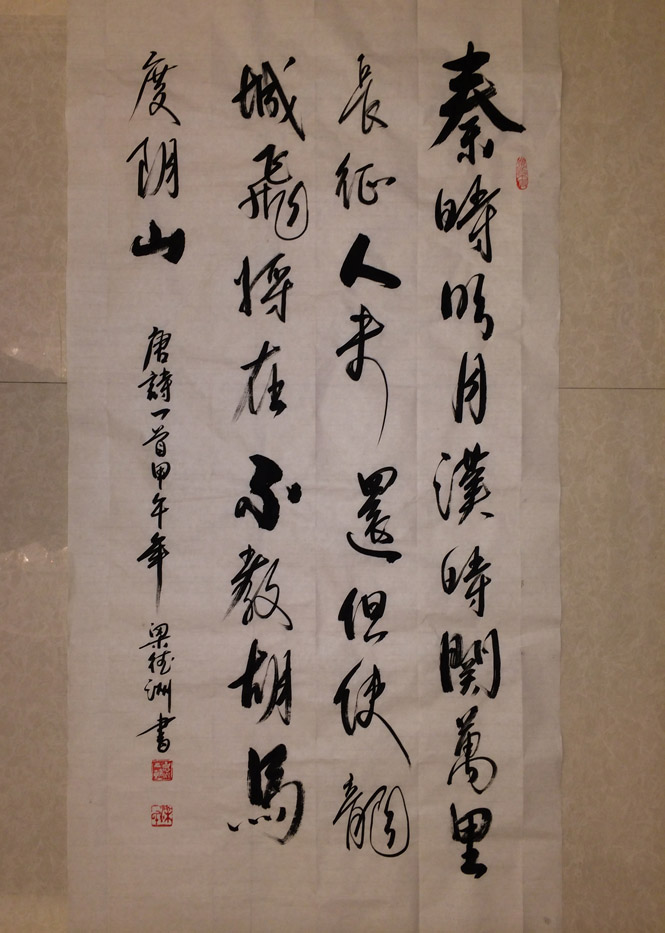 秦時明月漢時關萬里
長征人未還但使龍
城飛將在不教胡馬
度阴山
唐詩一首甲午年
梁德洲書